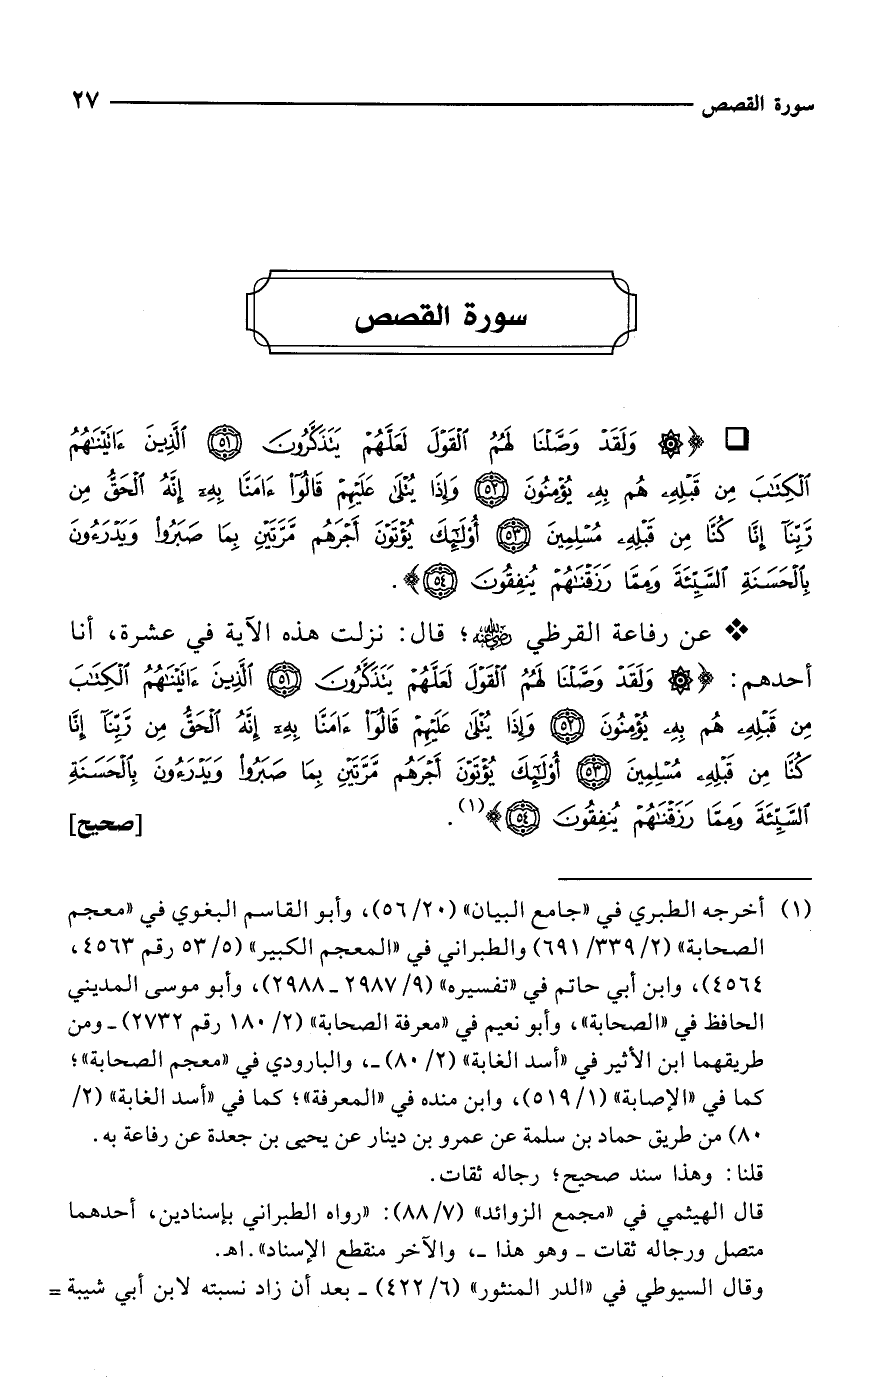 سورة القصص ٢٧
سورة القصص
﴿۞ وَلَقَدْ وَصَّلْنَا لَهُمُ ٱلْقَوْلَ لَعَلَّهُمْ يَتَذَكَّرُونَ ٥١ ٱلَّذِينَ ءَاتَيْنَٰهُمُ
ٱلْكِتَٰبَ مِن قَبْلِهِۦ هُم بِهِۦ يُؤْمِنُونَ ٥٢ وَإِذَا يُتْلَىٰ عَلَيْهِمْ قَالُوٓاْ ءَامَنَّا بِهِۦٓ إِنَّهُ ٱلْحَقُّ مِن
رَّبِّنَآ إِنَّا كُنَّا مِن قَبْلِهِۦ مُسْلِمِينَ ٥٣ أُوْلَٰٓئِكَ يُؤْتَوْنَ أَجْرَهُم مَّرَّتَيْنِ بِمَا صَبَرُواْ وَيَدْرَءُونَ
بِٱلْحَسَنَةِ ٱلسَّيِّئَةَ وَمِمَّا رَزَقْنَٰهُمْ يُنفِقُونَ ٥٤﴾.
❖ عن رفاعة القرظي رضي الله عنه؛ قال: نزلت هذه الآية في عشرة، أنا
أحدهم: ﴿۞ وَلَقَدْ وَصَّلْنَا لَهُمُ ٱلْقَوْلَ لَعَلَّهُمْ يَتَذَكَّرُونَ ٥١ ٱلَّذِينَ ءَاتَيْنَٰهُمُ ٱلْكِتَٰبَ
مِن قَبْلِهِۦ هُم بِهِۦ يُؤْمِنُونَ ٥٢ وَإِذَا يُتْلَىٰ عَلَيْهِمْ قَالُوٓاْ ءَامَنَّا بِهِۦٓ إِنَّهُ ٱلْحَقُّ مِن رَّبِّنَآ إِنَّا
كُنَّا مِن قَبْلِهِۦ مُسْلِمِينَ ٥٣ أُوْلَٰٓئِكَ يُؤْتَوْنَ أَجْرَهُم مَّرَّتَيْنِ بِمَا صَبَرُواْ وَيَدْرَءُونَ بِٱلْحَسَنَةِ
ٱلسَّيِّئَةَ وَمِمَّا رَزَقْنَٰهُمْ يُنفِقُونَ ٥٤﴾(١). [صحيح]
(١) أخرجه الطبري في «جامع البيان» (٥٦/٢٠)، وأبو القاسم البغوي في «معجم
الصحابة» (٢/ ٣٣٩/ ٦٩١) والطبراني في «المعجم الكبير» (٥/ ٥٣ رقم ٤٥٦٣،
٤٥٦٤)، وابن أبي حاتم في «تفسيره» (٩/ ٢٩٨٧ ـ ٢٩٨٨)، وأبو موسى المديني
الحافظ في «الصحابة»، وأبو نعيم في «معرفة الصحابة» (٢/ ١٨٠ رقم ٢٧٣٢) ـ ومن
طريقهما ابن الأثير في «أسد الغابة» (٢/ ٨٠) ـ، والبارودي في «معجم الصحابة»؛
كما في «الإصابة» (٥١٩/١)، وابن منده في «المعرفة»؛ كما في «أسد الغابة» (٢/
٨٠) من طريق حماد بن سلمة عن عمرو بن دينار عن يحيى بن جعدة عن رفاعة به.
قلنا: وهذا سند صحيح؛ رجاله ثقات.
قال الهيثمي في «مجمع الزوائد» (٨٨/٧): «رواه الطبراني بإسنادين، أحدهما
متصل ورجاله ثقات ـ وهو هذا ـ، والآخر منقطع الإسناد».اهـ.
وقال السيوطي في «الدر المنثور» (٤٢٢/٦) ـ بعد أن زاد نسبته لابن أبي شيبة =